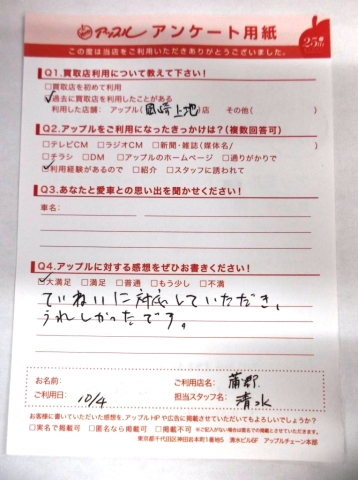 アップル アンケート用紙
25th
この度は当店をご利用いただきありがとうございました。
Q1.買取店利用について教えて下さい!
□買取店を初めて利用
□過去に買取店を利用したことがある
利用した店舗: アップル(岡崎上地)店 その他( )
Q2.アップルをご利用になったきっかけは?(複数回答可)
□テレビCM □ラジオCM □新聞・雑誌(媒体名/ )
□チラシ □DM □アップルのホームページ □通りがかりで
□利用経験があるので □紹介 □スタッフに誘われて
Q3.あなたと愛車との思い出を聞かせください!
車名:
Q4.アップルに対する感想をぜひお書きください!
□大満足 □満足 □普通 □もう少し □不満
ていねいに対応していただき、
うれしかったです。
お名前: ご利用店名: 蒲郡
ご利用日: 10/4 担当スタッフ名: 清水
お客様に書いていただいた感想を、アップルHPや広告に掲載させていただいてもよろしいでしょうか?
□実名で掲載可 □匿名なら掲載可 □掲載不可 ※ご記入がない場合は匿名での掲載とさせていただきます。
東京都千代田区神田岩本町1番地5 清水ビル6F アップルチェーン本部